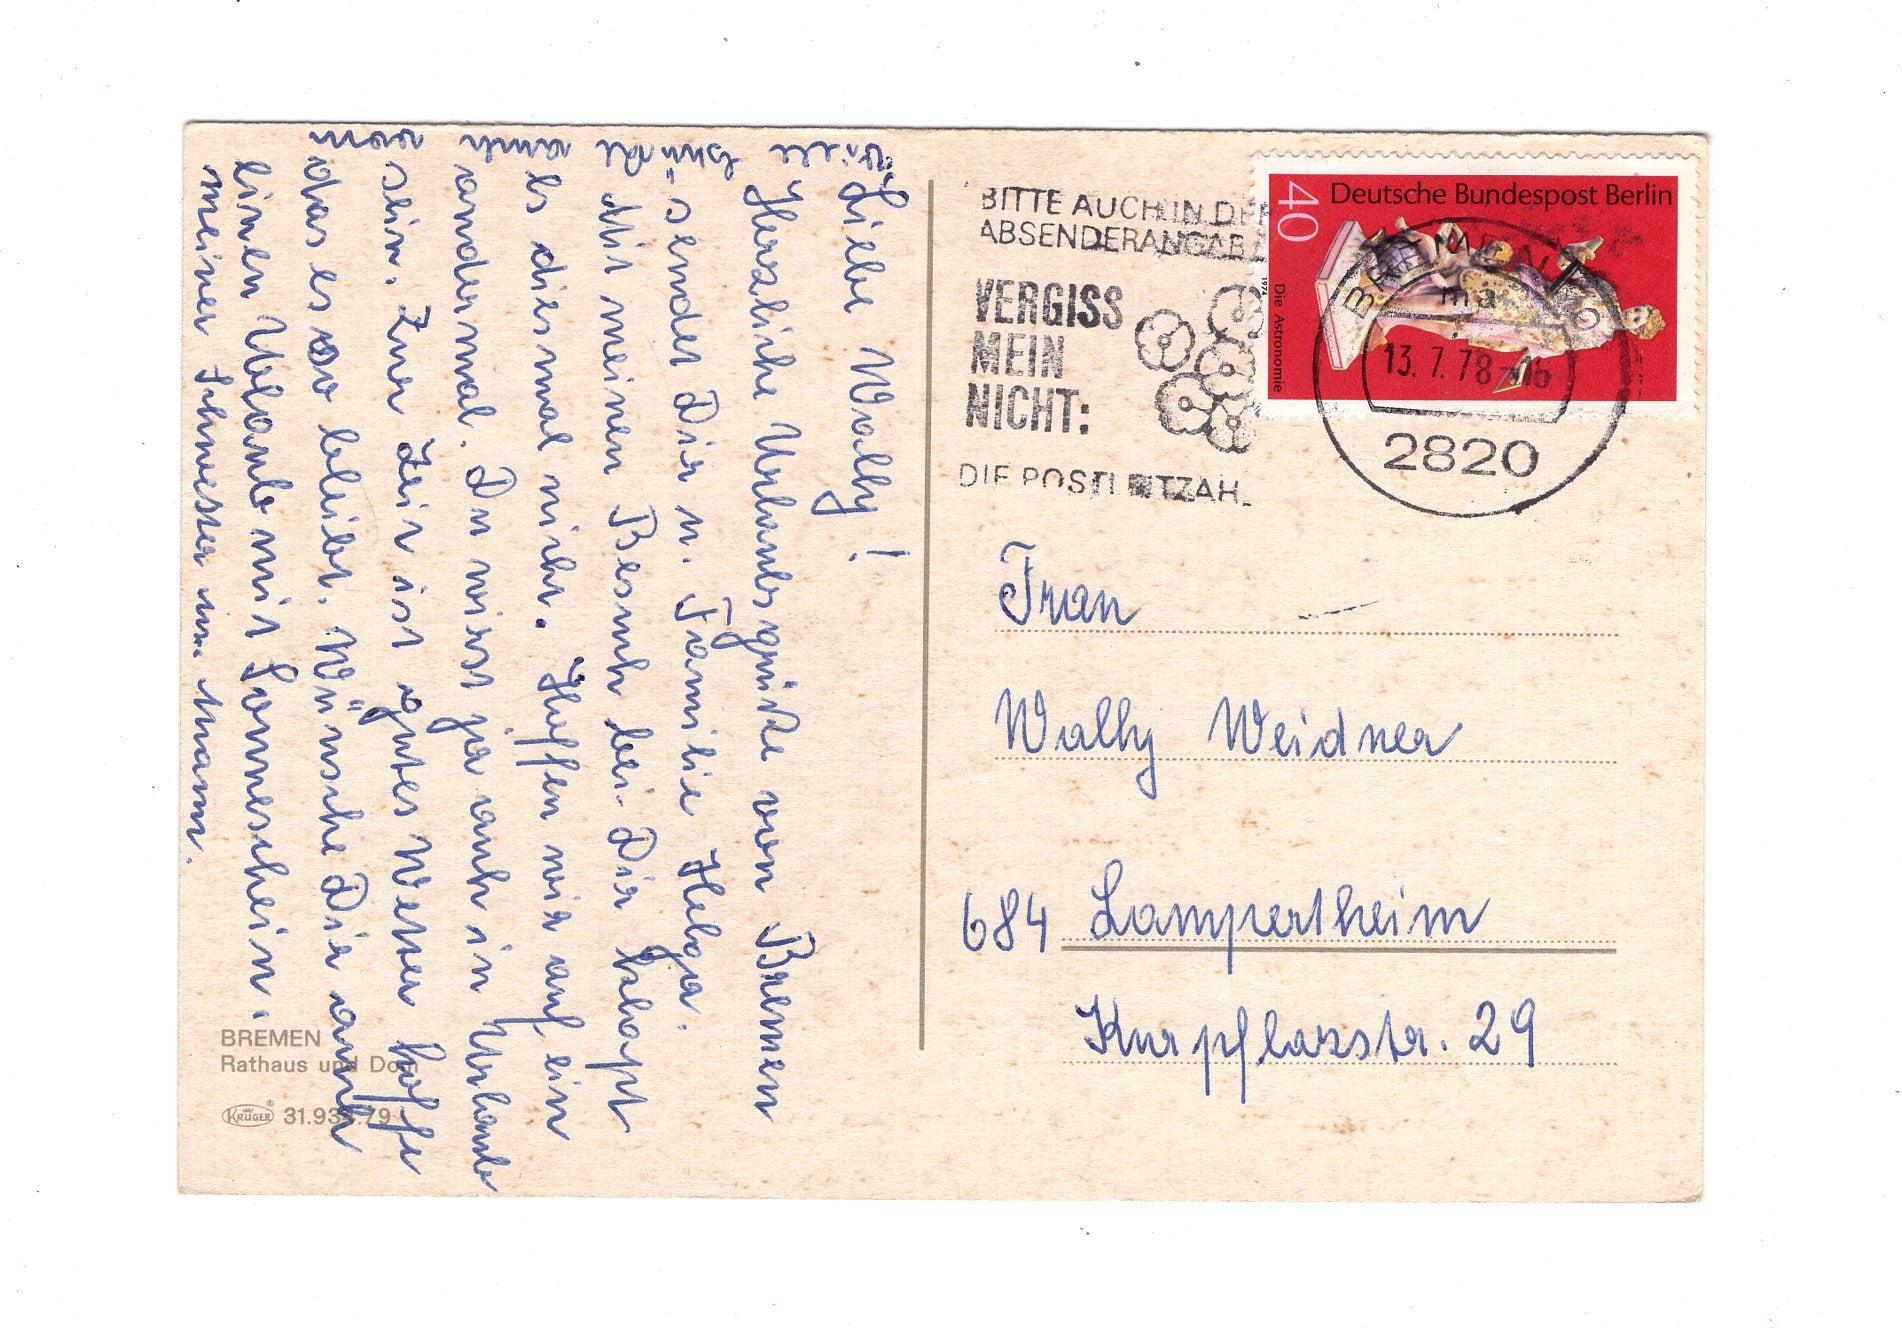 Liebe Wally!
Herzliche Urlaubsgrüße von Bremen
sendet Dir u. Familie Helga.
Mit meinen Besuch bei Dir klapt
es diesmal nicht. Hoffen wir auf ein
andermal. Du wirst ja auch in Urlaub
sein. Zur Zeit ist gutes Wetter hoffe
das es so bleibt. Wünsche Dir auch
einen Urlaub mit Sonnenschein.
meiner Schwester u. Mann.
viele
Grüße
auch
vom
BREMEN
Rathaus und Dom
KRÜGER® 31.934.79
BITTE AUCH IN DER
ABSENDERANGABE
VERGISS
MEIN
NICHT:
DIE POSTLEITZAHL
Deutsche Bundespost Berlin
40
1974
Die Astronomie
BREMERHAVEN
ma
13.7.78-16
2820
Frau
Wally Weidner
684 Lampertheim
Kurpfalzstr. 29